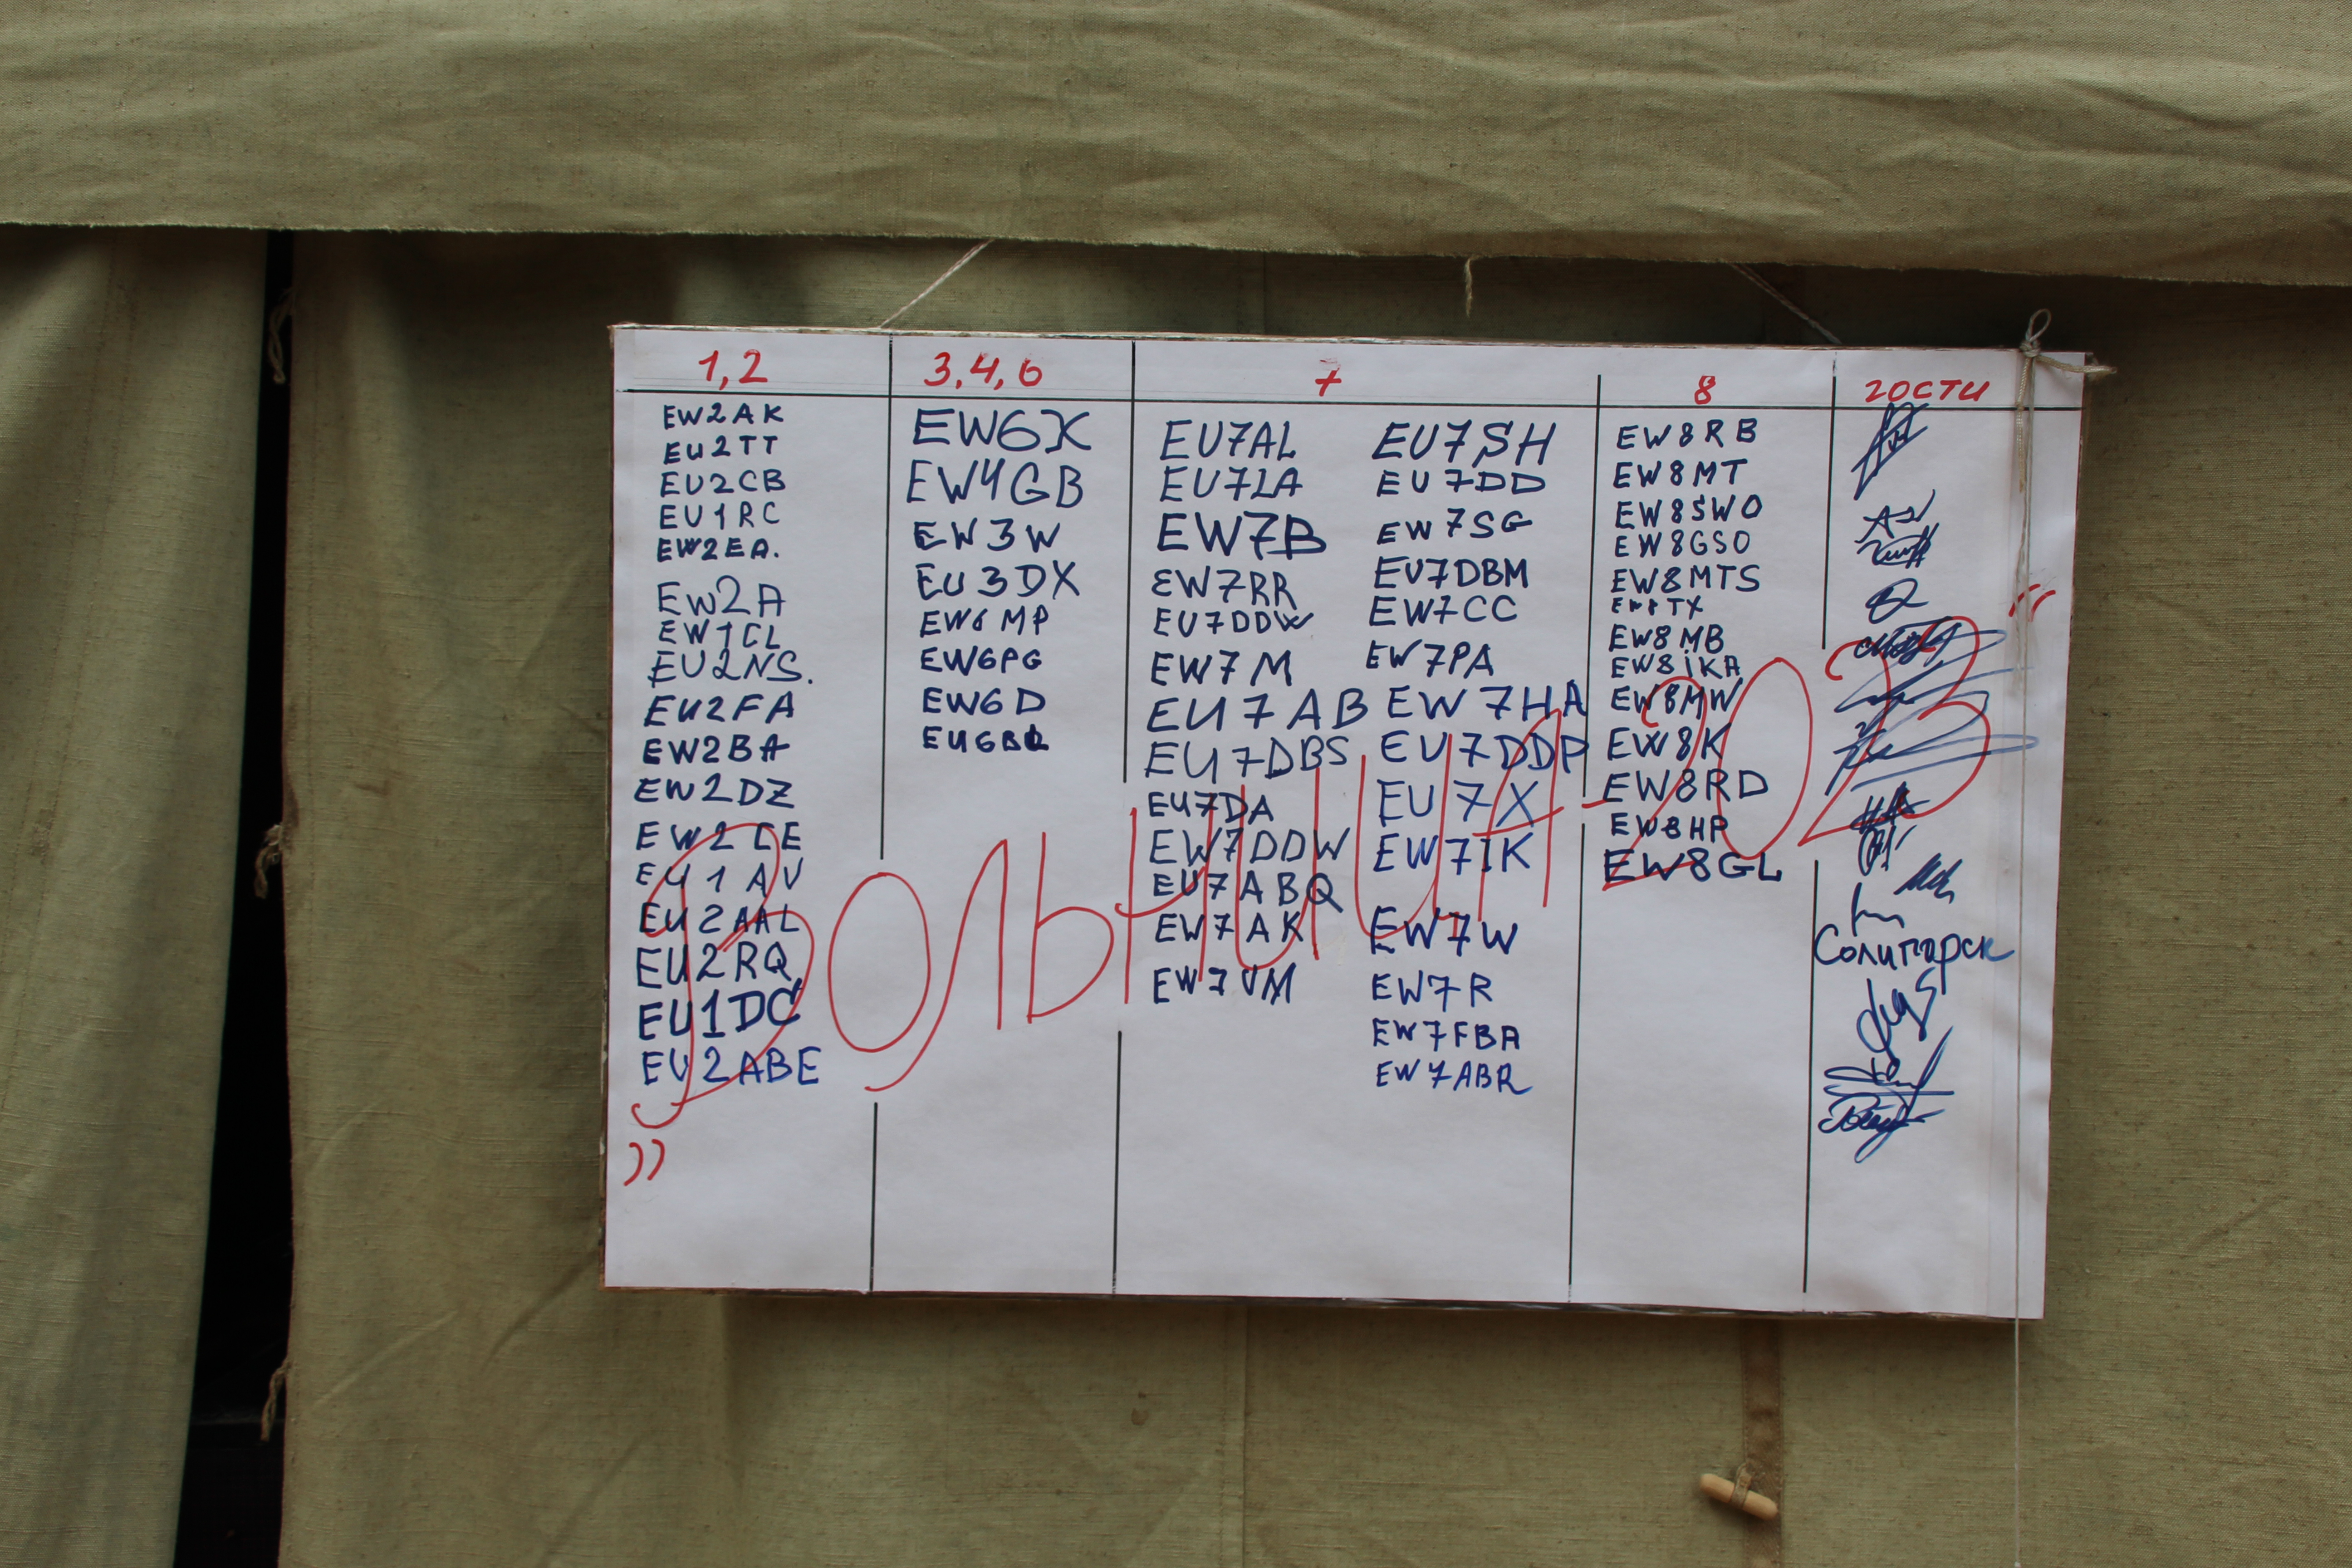 1,2
EW2AK
EU2TT
EU2CB
EU1RC
EW2EA.
EW2A
EW1CL
EU2NS.
EU2FA
EW2BA
EW2DZ
EW2CE
EU1AV
EU2AAL
EU2RQ
EU1DC
EU2ABE
3,4,6
EW6X
EW4GB
EW3W
EU3DX
EW6MP
EW6PG
EW6D
7
EU7AL
EU7LA
EW7B
EW7RR
EU7DDW
EW7M
EU7AB
EU7DBS
EU7DA
EW7DDW
EU7ABQ
EW7AK
EW7VM
EU7SH
EU7DD
EW7SG
EV7DBM
EW7CC
EW7PA
EW7HA
EU7DDP
EU7X
EW7IK
EW7W
EW7R
EW7FBA
EW7ABR
8
EW8RB
EW8MT
EW8SWO
EW8GSO
EW8MTS
EW8TX
EW8MB
EW8IKA
EW8MW
EW8K
EW8RD
EW8HP
EW8GL
гости
Солигорск
"Вольница-2023"